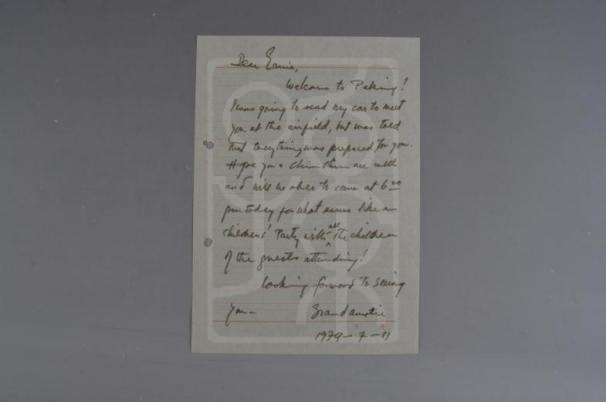 Dear Ernie,
Welcome to Peking!
I was going to send my car to meet
you at the airfield, but was told
that everything was prepared for you.
Hope you & are well
and will be able to come at 6:00
pm today for what seems like a
childrens' Party with all the children
of the guests attending!
Looking forward to seeing
you — Grandauntie
1979-7-11